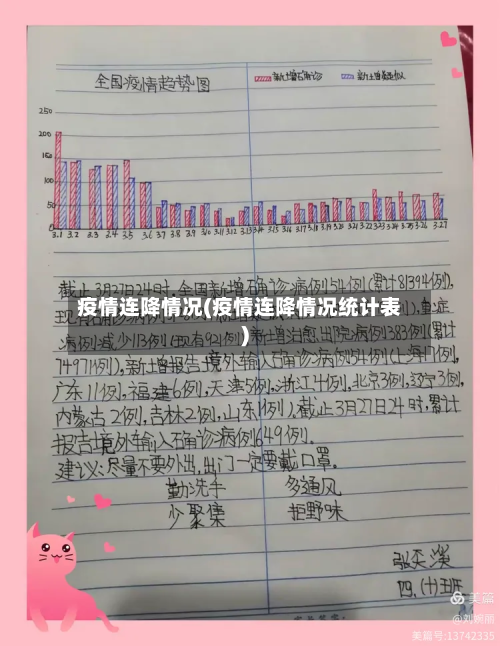 全国疫情趋势图
新增确诊 新增疑似
250
200
150
100
50
0
3.1 3.2 3.3 3.4 3.5 3.6 3.7 3.8 3.9 3.10 3.11 3.12 3.13 3.14 3.15 3.16 3.17 3.18 3.19 3.20 3.21 3.22 3.23 3.24 3.25 3.26 3.27
截止3月27日24时,全国新增确诊病例54例(累计81394例),
疫情连降情况(疫情连降情况统计表
)
病例减少13例(现有921例)新增治愈出院病例383例(累计
74971例),新增报告境外输入确诊病例54例(上海17例,
广东11例,福建6例,天津5例,浙江4例,北京3例,辽宁3例,
内蒙古2例,吉林2例,山东1例),截止3月27日24时,累计
报告境外输入确诊病例649例。
建议:尽量不要外出,出门一定要戴口罩。
勤洗手 多通风
少聚集 拒野味
四、(十)班
美篇
@刘婉丽
美篇号:13742335